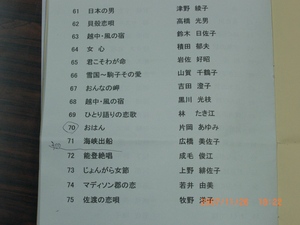 61 日本の男 津野 綾子
62 貝殻恋唄 高橋 光男
63 越中・風の宿 鈴木 日佐子
64 女 心 積田 郁夫
65 君こそわが命 岩佐 好昭
66 雪国~駒子その愛 山賀 千鶴子
67 おんなの岬 吉田 澄子
68 越中・風の宿 黒川 光枝
69 ひとり語りの恋歌 林 たき江
70 おはん 片岡 あゆみ
71 海峡出船 広橋 美佐子
72 能登絶唱 成毛 俊江
73 じょんがら女節 上野 緋佐子
74 マディソン郡の恋 若井 由美
75 佐渡の恋唄 牧野 洋子